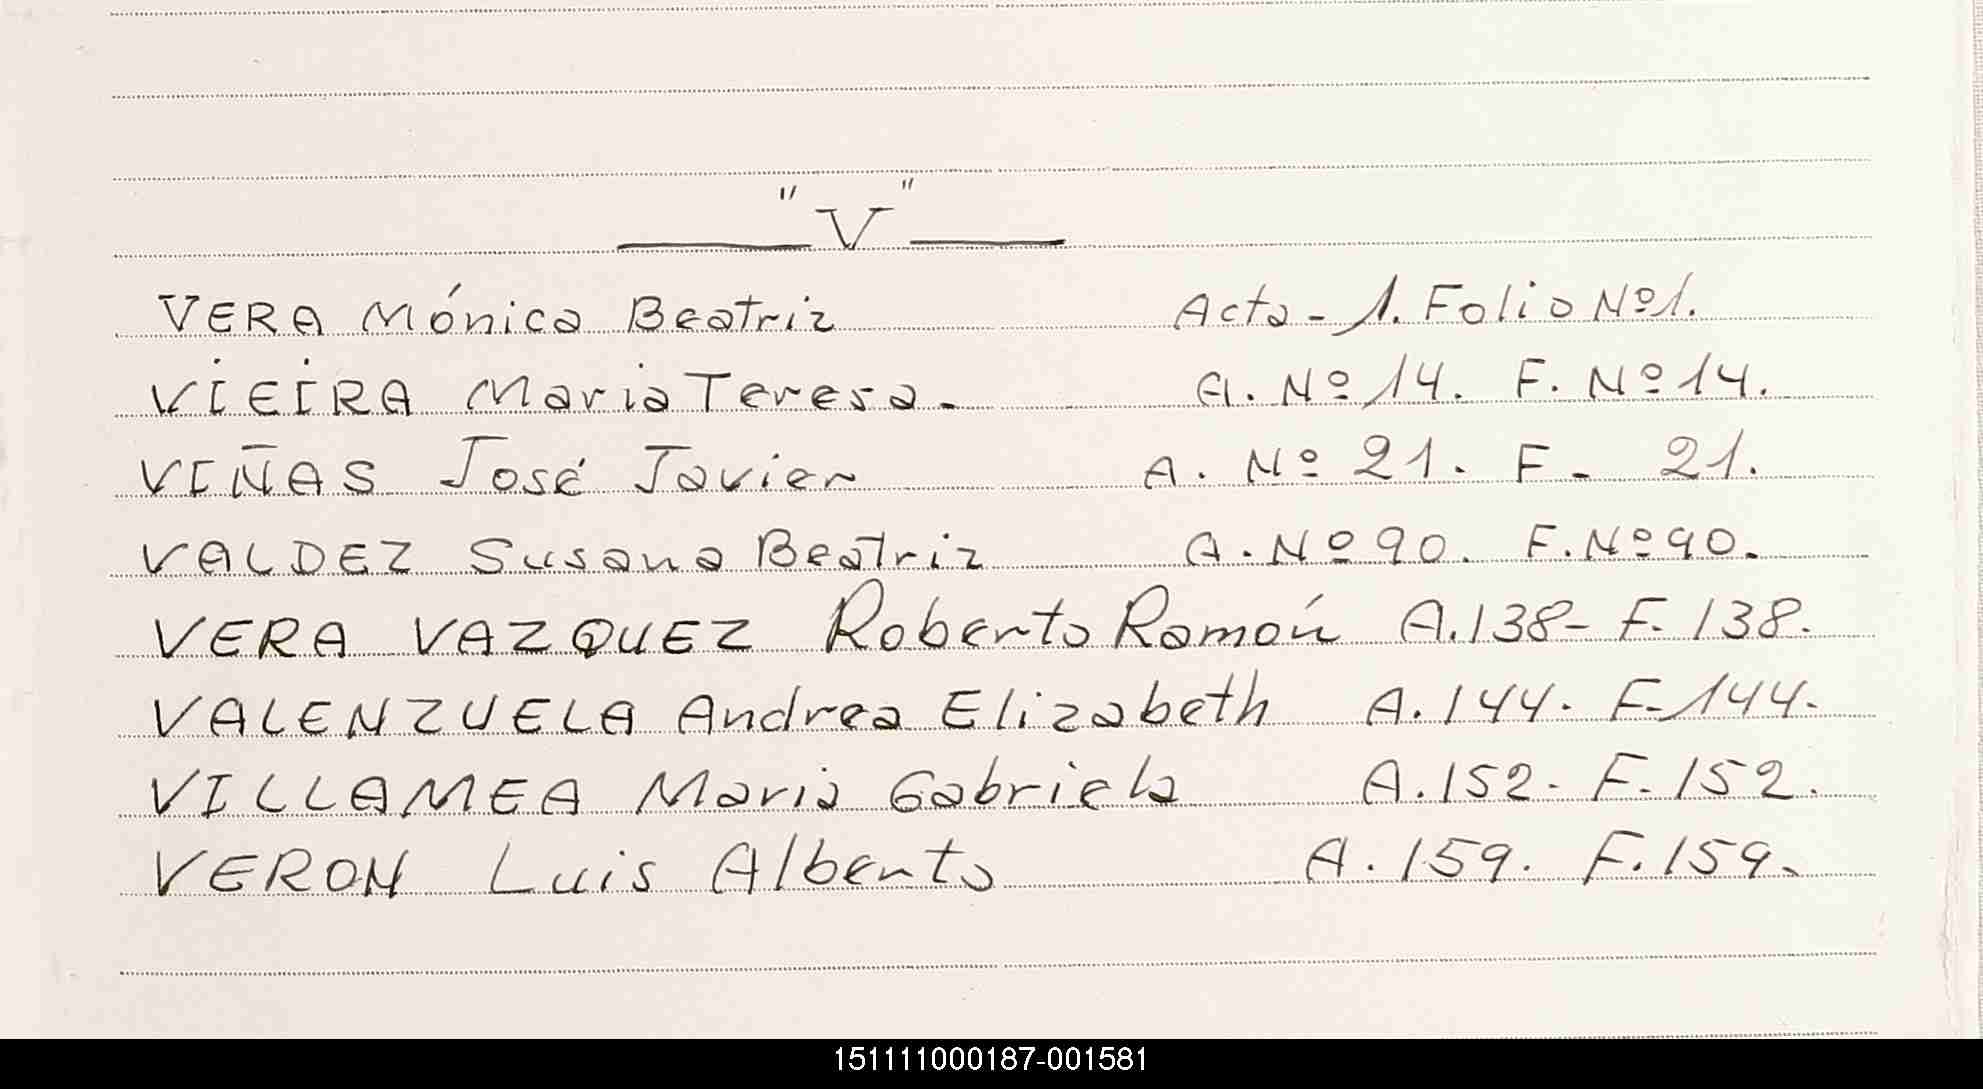 "V"
VERA Mónica Beatriz Acta - 1. Folio Nº 1.
VIEIRA Maria Teresa. A. Nº 14. F. Nº 14.
VIÑAS José Javier A. Nº 21. F - 21.
VALDEZ Susana Beatriz A. Nº 90. F. Nº 90.
VERA VAZQUEZ Roberto Ramón A. 138 - F. 138.
VALENZUELA Andrea Elizabeth A. 144. F. 144.
VILLAMEA Maria Gabriela A. 152. F. 152.
VERON Luis Alberto A. 159. F. 159.
151111000187-001581